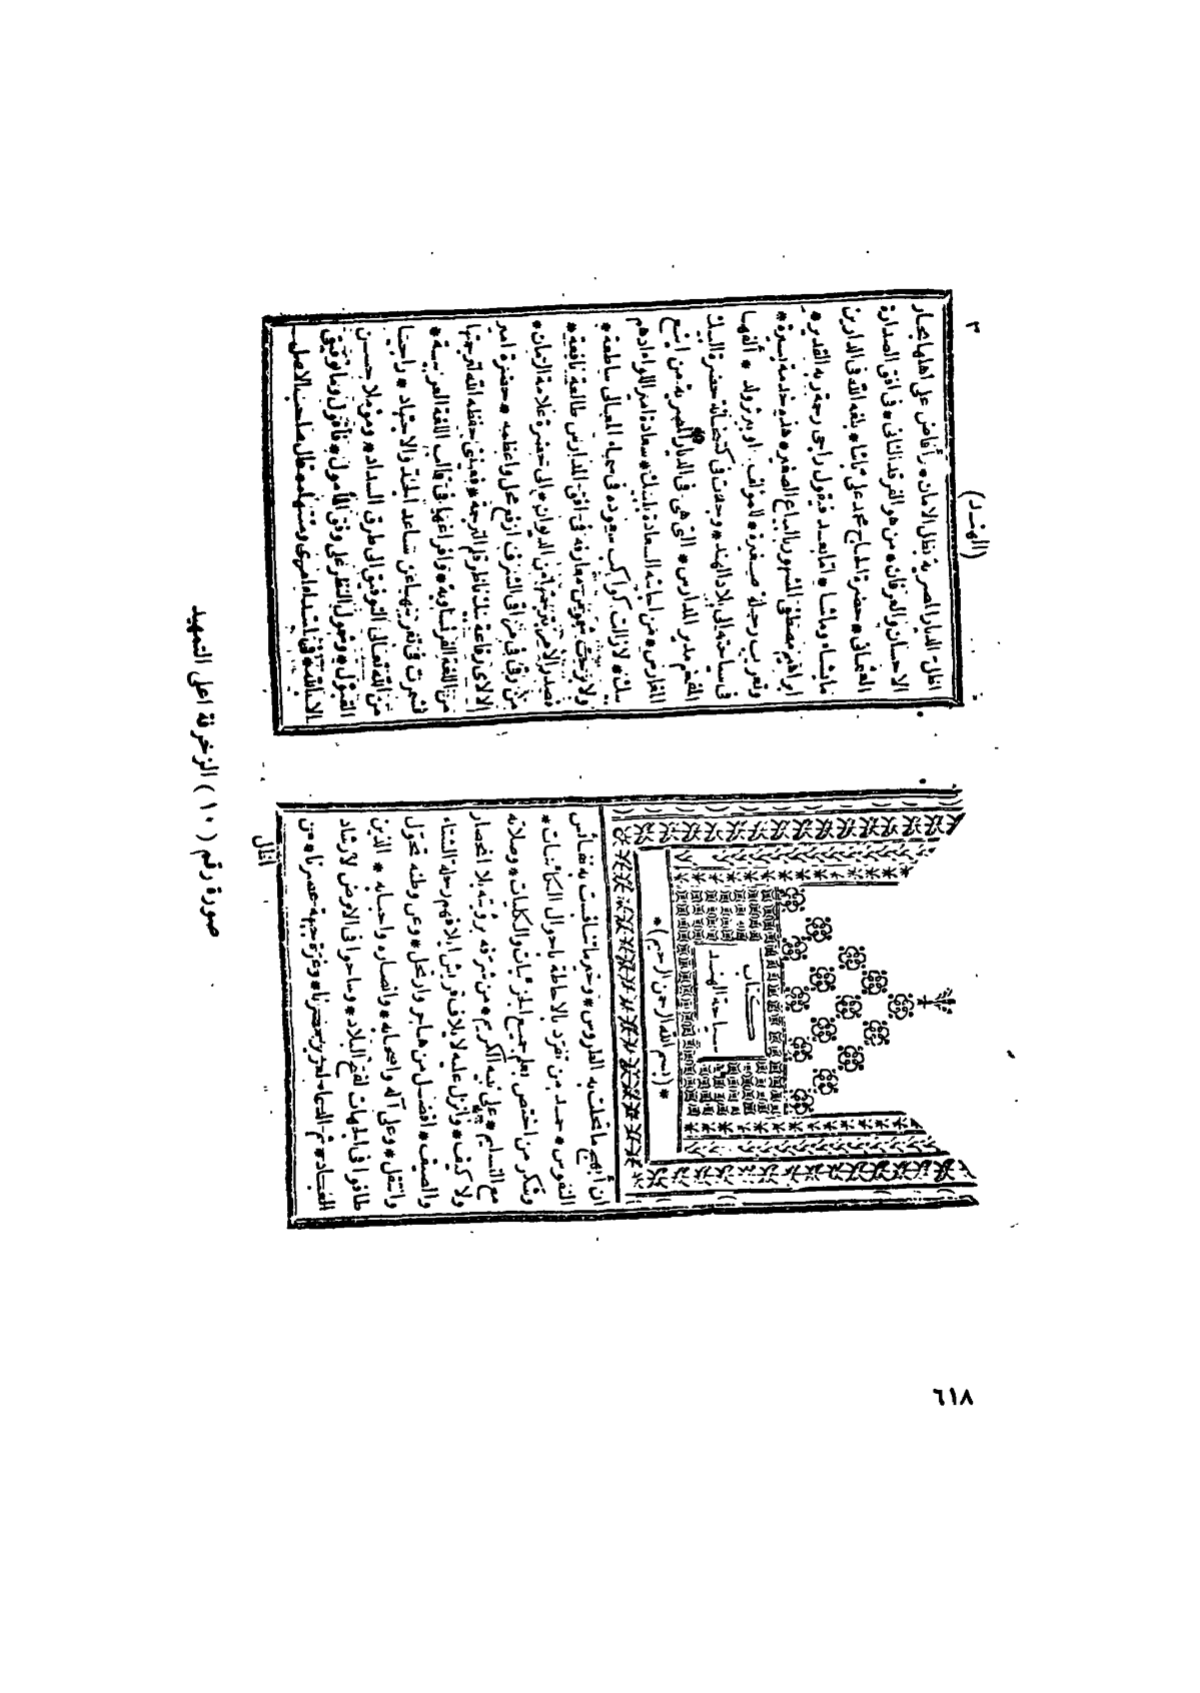 كتاب
سياحة الهند
*(بسم الله الرحمن الرحيم)*
ان أبهج ما تحلت به الطروس * وخير ما تنافست به نفائس
النفوس * حمد من تفرد بالاحاطة باحوال الكائنات *
وشكر من اختص بعلم جميع الجزئيات والكليات * وصلاته
مع التسليم * على نبيه الكريم * من شرفه برؤيته بلا انحصار
ولا كيف * وأنزل عليه لايلاف قريش ايلافهم رحلة الشتاء
والصيف * افضل من هاجر وارتحل * وعن وطنه تحول
وانتقل * وعلى آله واصحابه * وانصاره واحبابه * الذين
طافوا فى الجهات لفتح البلاد * وساحوا فى الارض لارشاد
العباد * ثم الدعاء لعزيز مصرنا * وغرة جبهة عصرنا * من
أظل
(الهند)
٣
اظل الديار المصرية بظل الامان * وأفاض على اهلها بحار
الاحسان والعرفان * من هو الفرقد الثانى * فى افق الصدارة
العثمانى * حضرة الحاج محمد على باشا * بلغه الله فى الدارين
ما يشاء وما شا * أما بعد فيقول راجى رحمة ربه القدير *
ابراهيم مصطفى المشهور بالبياع الصغير * هذه خدمة يسيرة *
وتعريب رحلة صغيرة * لمؤلف اوبرترولد * ألفها
فى سياحته الى بلاد الهند * وجدت فى كتبخانة حضرة البيك
المفخم مدير المدارس * التى هى فى الديار المصرية من اينع
المغارس * من احاسنه السعادة لبيك * سعادة امير اللواء ادهم
بيك * لا زالت كواكب سعوده فى سماء المعالى ساطعة *
ولا برحت شموس معارفه فى افق المدارس طالعة نافعة *
فصدر الامر بترجمتها من الديوان * الى حضرة علامة الزمان *
من رقى فى مراقى الشرف ارفع محل واعظمه * حضرة امير
الالاى رفاعة بيك ناظر قلم الترجمة * فعيننى حفظه الله لترجمتها
من اللغة الفرنساوية * وافراغها فى قالب اللغة العربية *
فشمرت فى تعريبها عن ساعد الجد والاجتهاد * راجيا
من الله تعالى التوفيق الى طرق السداد * ومؤملا حسن
القبول * وشمول النظر على وفق المأمول * فأقول وما توفيقى
الا بالله * فى ابتداء امرى ومنتهاه * قال صاحب الاصل
صورة رقم (١٠) الزخرفة اعلى التمهيد
٦١٨